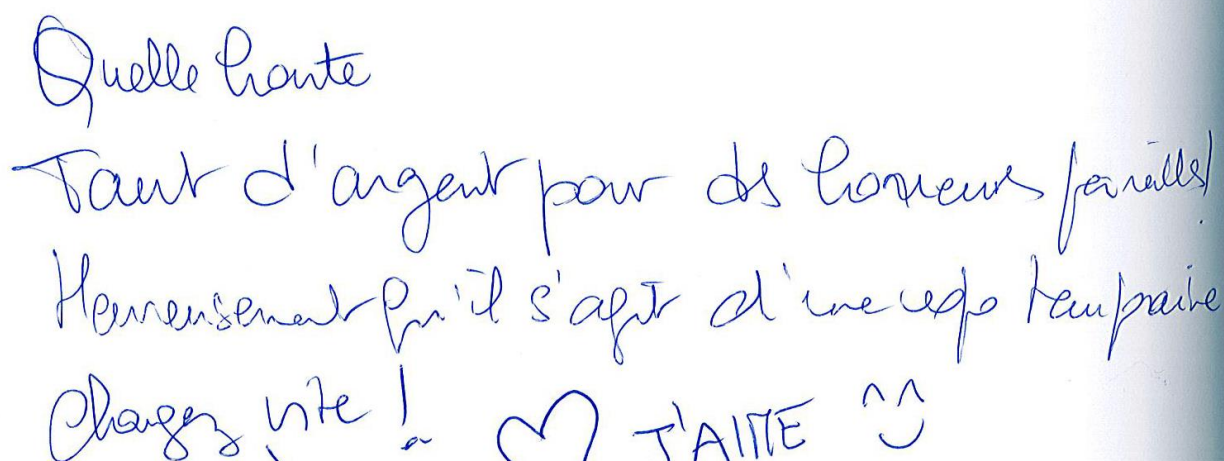 Quelle honte
Tant d'argent pour des horreurs pareilles!
Heureusement qu'il s'agit d'une expo temporaire
Changez vite !
J'AIME